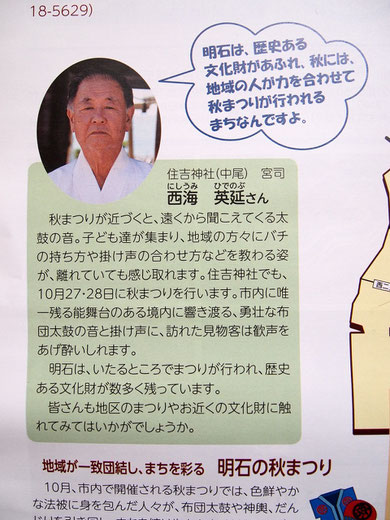 18-5629)
明石は、歴史ある
文化財があふれ、秋には、
地域の人が力を合わせて
秋まつりが行われる
まちなんですよ。
住吉神社(中尾) 宮司
にしうみ ひでのぶ
西海 英延さん
秋まつりが近づくと、遠くから聞こえてくる太
鼓の音。子ども達が集まり、地域の方々にバチ
の持ち方や掛け声の合わせ方などを教わる姿
が、離れていても感じ取れます。住吉神社でも、
10月27・28日に秋まつりを行います。市内に唯
一残る能舞台のある境内に響き渡る、勇壮な布
団太鼓の音と掛け声に、訪れた見物客は歓声を
あげ酔いしれます。
明石は、いたるところでまつりが行われ、歴史
ある文化財が数多く残っています。
皆さんも地区のまつりやお近くの文化財に触
れてみてはいかがでしょうか。
地域が一致団結し、まちを彩る 明石の秋まつり
10月、市内で開催される秋まつりでは、色鮮やか
な法被に身を包んだ人々が、布団太鼓や神輿、だん
西二